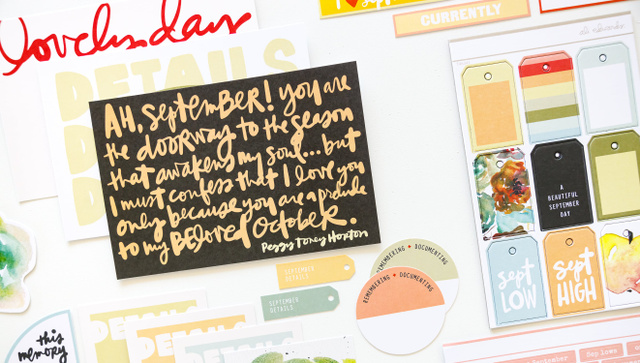 lovely days
CURRENTLY
DETAILS
AH, SEPTEMBER! you are
the doorway to the season
that awakens my soul... but
I must confess that I love you
only because you are a prelude
to my BELOVED OCTOBER.
Peggy Toney Horton
ali edwards
A
BEAUTIFUL
SEPTEMBER
DAY
sept
LOW
sept
HIGH
REMEMBERING • DOCUMENTING
REMEMBERING • DOCUMENTING
SEPTEMBER
DETAILS
SEPTEMBER
DETAILS
DETAILS
DETAILS
DETAILS
this
memory